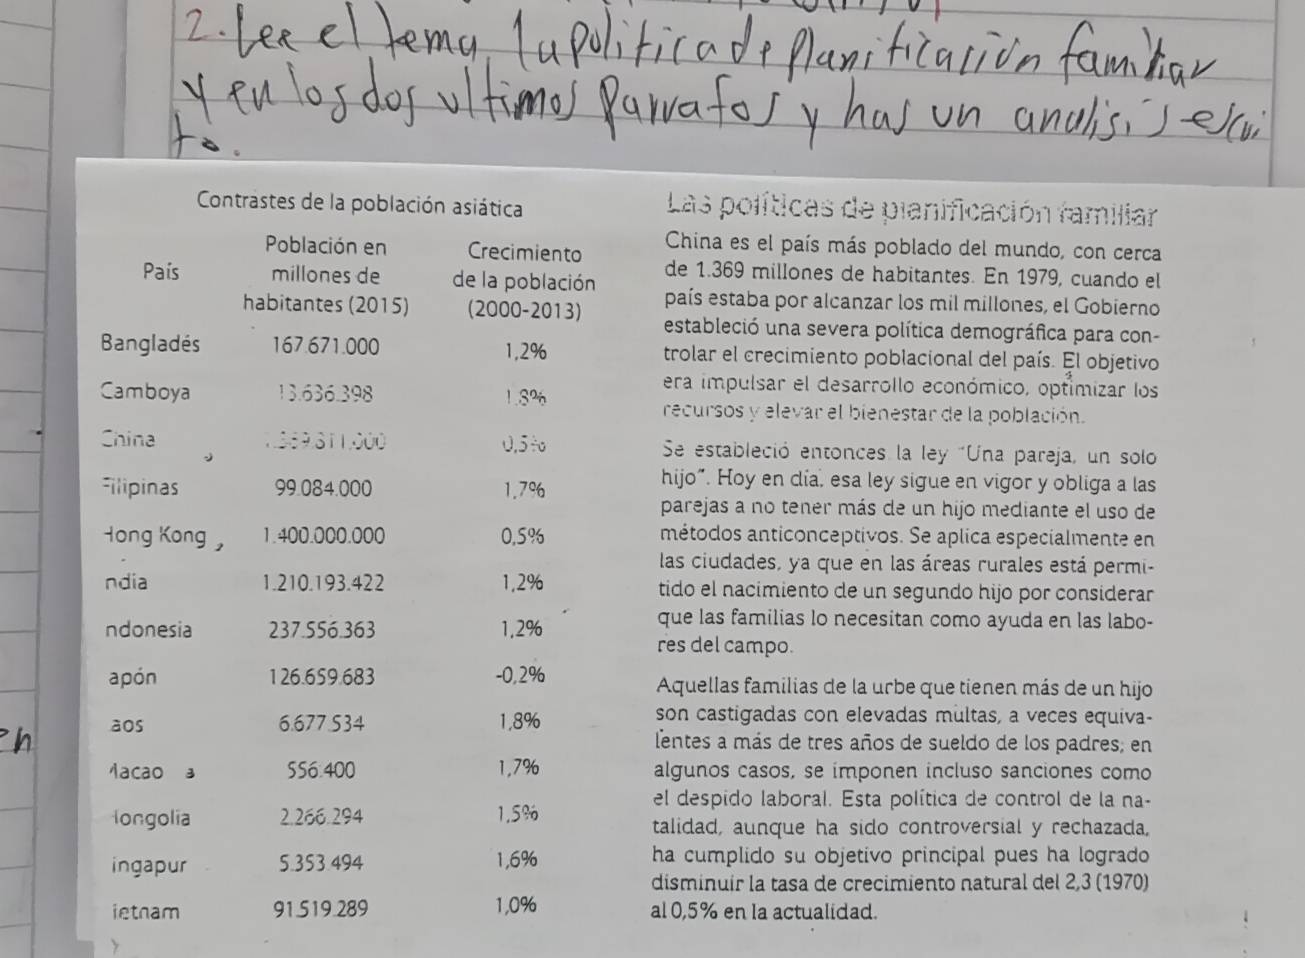 2. Lee el tema la politica de planificación familiar
y en los dos ultimos parrafos y has un analisis escri
to.
Contrastes de la población asiática
País Población en millones de habitantes (2015) Crecimiento de la población (2000-2013)
Bangladés 167.671.000 1,2%
Camboya 13.636.398 1.8%
China 1.369.811.000 0,5%
Filipinas 99.084.000 1,7%
Hong Kong 1.400.000.000 0,5%
ndia 1.210.193.422 1,2%
ndonesia 237.556.363 1,2%
apón 126.659.683 -0,2%
aos 6.677.534 1,8%
Macao 556.400 1,7%
longolia 2.266.294 1,5%
ingapur 5.353.494 1,6%
ietnam 91.519.289 1,0%
Las políticas de planificación familiar
China es el país más poblado del mundo, con cerca
de 1.369 millones de habitantes. En 1979, cuando el
país estaba por alcanzar los mil millones, el Gobierno
estableció una severa política demográfica para con-
trolar el crecimiento poblacional del país. El objetivo
era impulsar el desarrollo económico, optimizar los
recursos y elevar el bienestar de la población.
Se estableció entonces la ley "Una pareja, un solo
hijo". Hoy en día, esa ley sigue en vigor y obliga a las
parejas a no tener más de un hijo mediante el uso de
métodos anticonceptivos. Se aplica especialmente en
las ciudades, ya que en las áreas rurales está permi-
tido el nacimiento de un segundo hijo por considerar
que las familias lo necesitan como ayuda en las labo-
res del campo.
Aquellas familias de la urbe que tienen más de un hijo
son castigadas con elevadas multas, a veces equiva-
lentes a más de tres años de sueldo de los padres; en
algunos casos, se imponen incluso sanciones como
el despido laboral. Esta política de control de la na-
talidad, aunque ha sido controversial y rechazada,
ha cumplido su objetivo principal pues ha logrado
disminuir la tasa de crecimiento natural del 2,3 (1970)
al 0,5% en la actualidad.